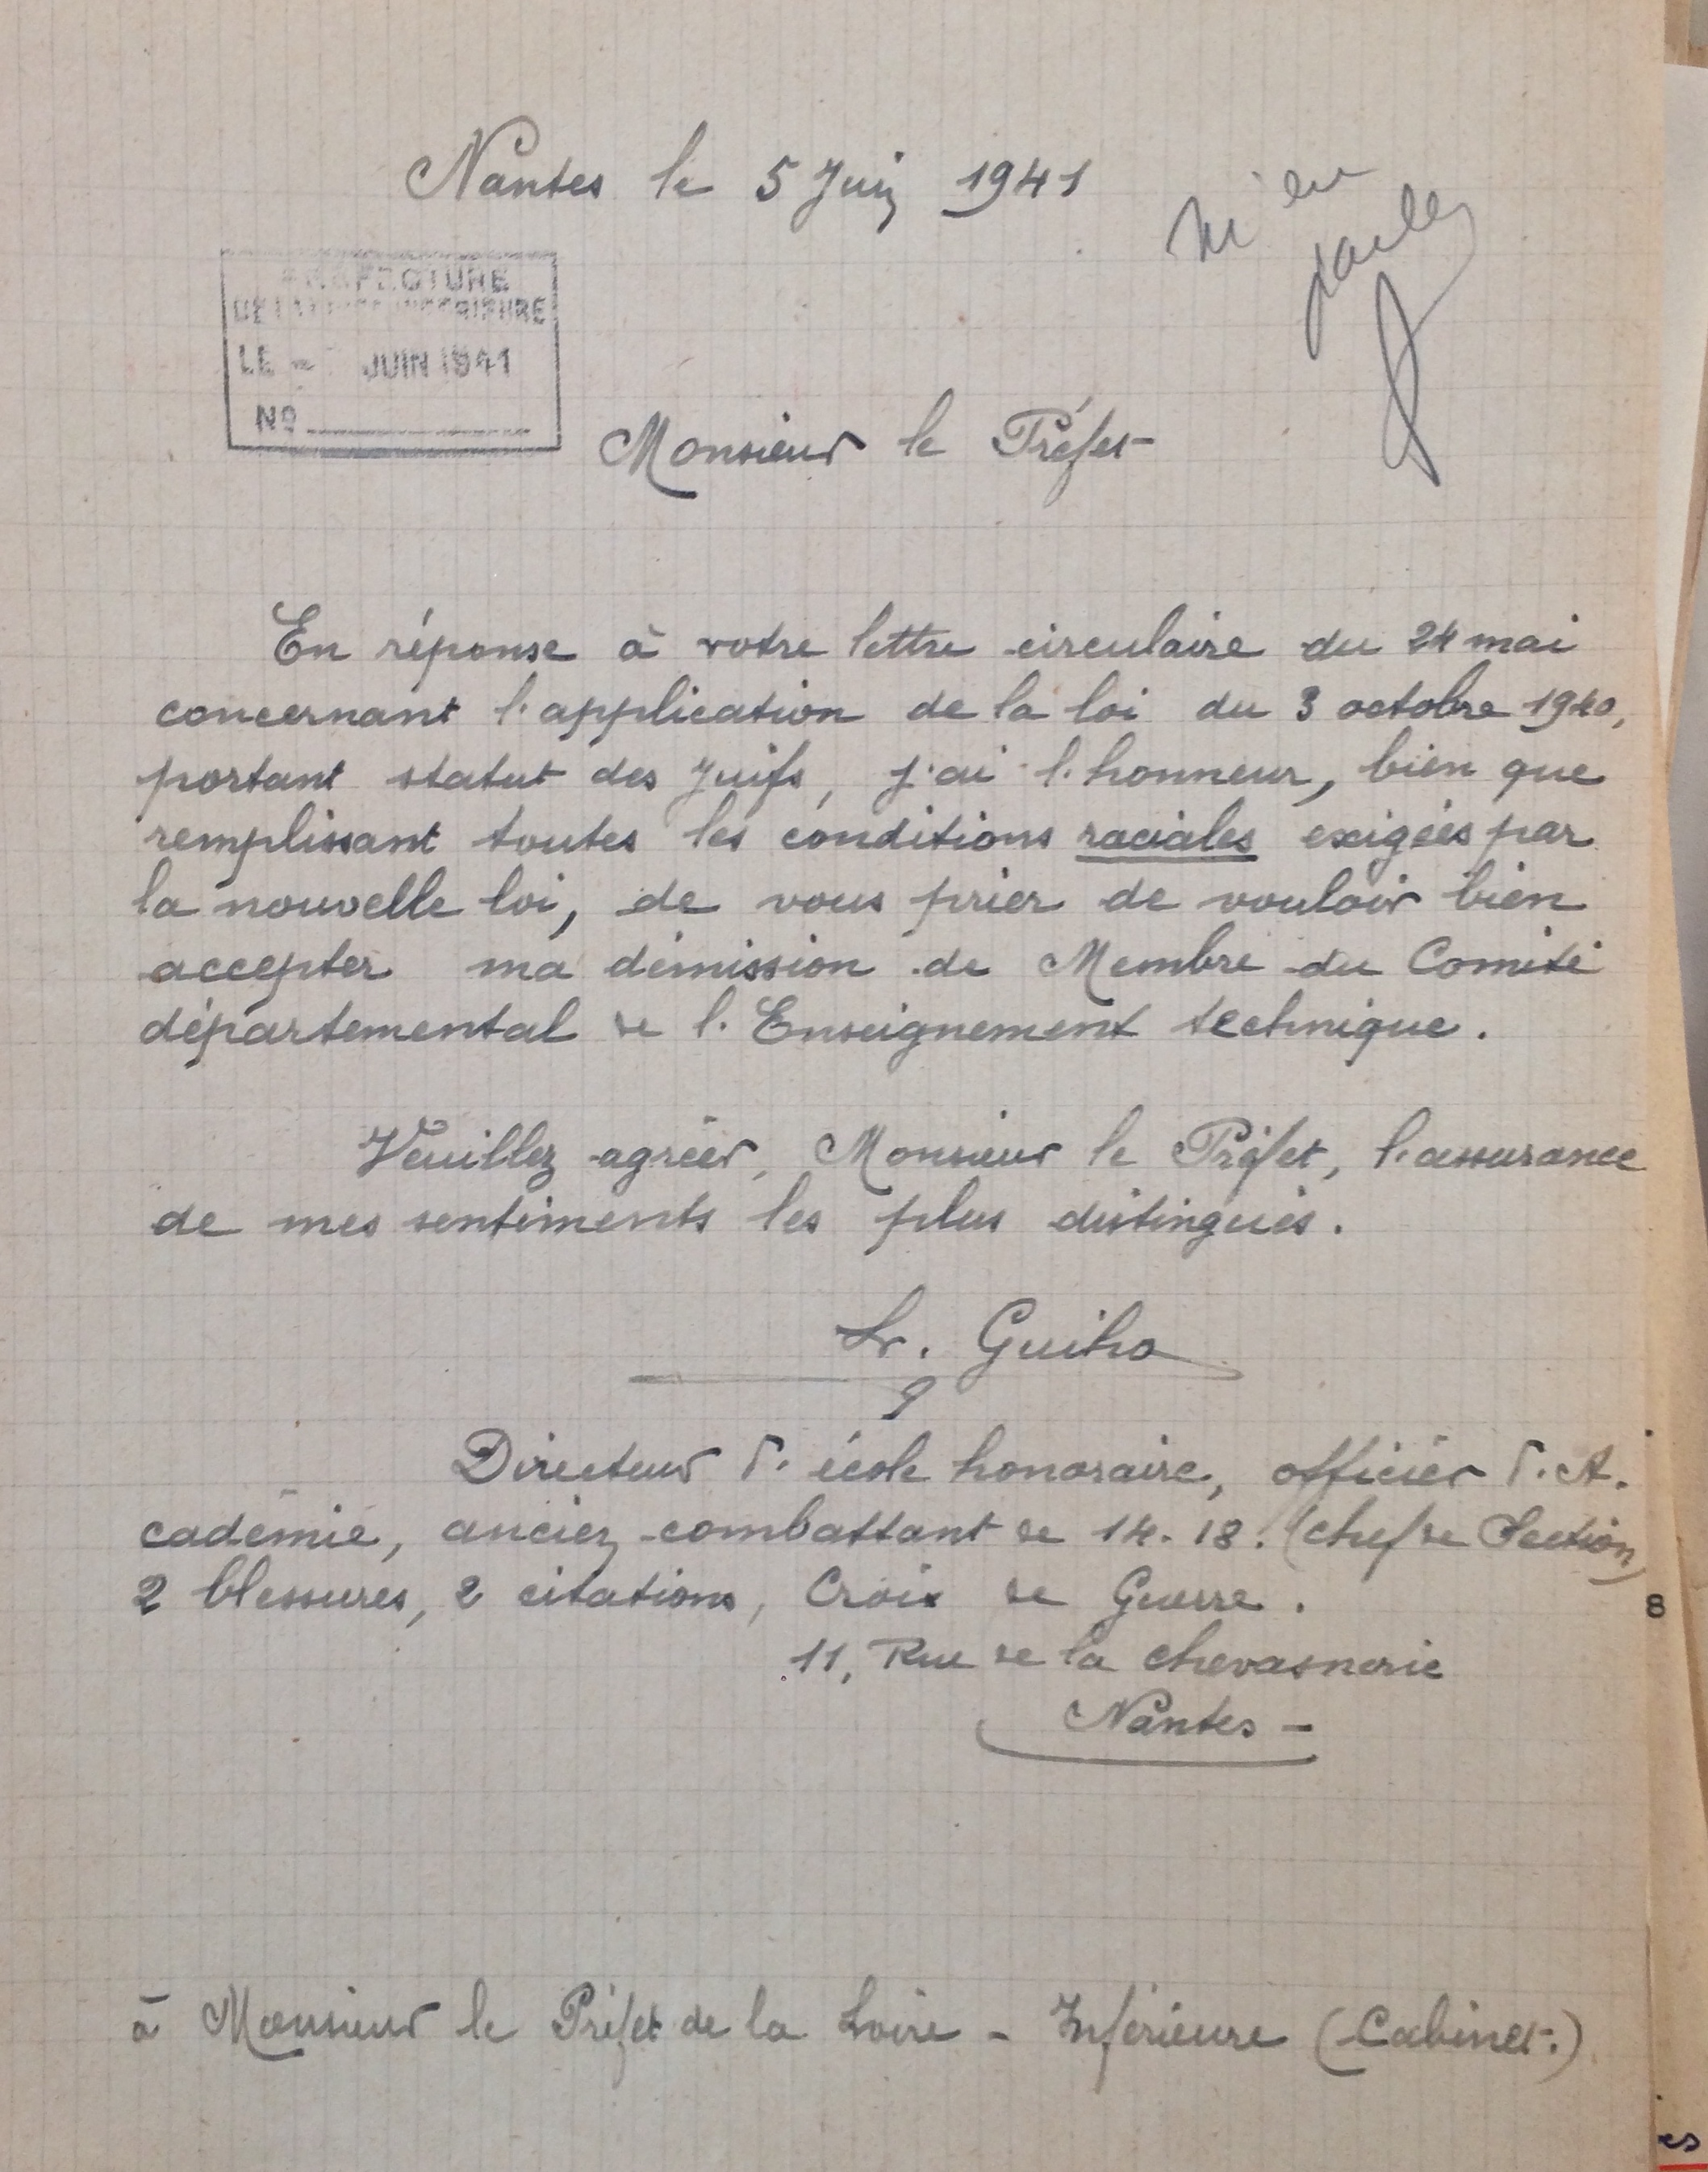 Nantes le 5 Juin 1941
M'en
parler
PRÉFECTURE
DE LA LOIRE INFÉRIEURE
LE - JUIN 1941
No
Monsieur le Préfet
En réponse à votre lettre circulaire du 24 mai
concernant l'application de la loi du 3 octobre 1940,
portant statut des Juifs, j'ai l'honneur, bien que
remplissant toutes les conditions raciales exigées par
la nouvelle loi, de vous prier de vouloir bien
accepter ma démission de Membre du Comité
départemental de l'Enseignement technique.
Veuillez agréer, Monsieur le Préfet, l'assurance
de mes sentiments les plus distingués.
Guiho
Directeur d'école honoraire, officier d'A-
cadémie, ancien combattant de 14-18. (chef de Section)
2 blessures, 2 citations, Croix de Guerre.
8
11, Rue de la Chevasnerie
Nantes -
à Monsieur le Préfet de la Loire - Inférieure (Cabinet.)
es